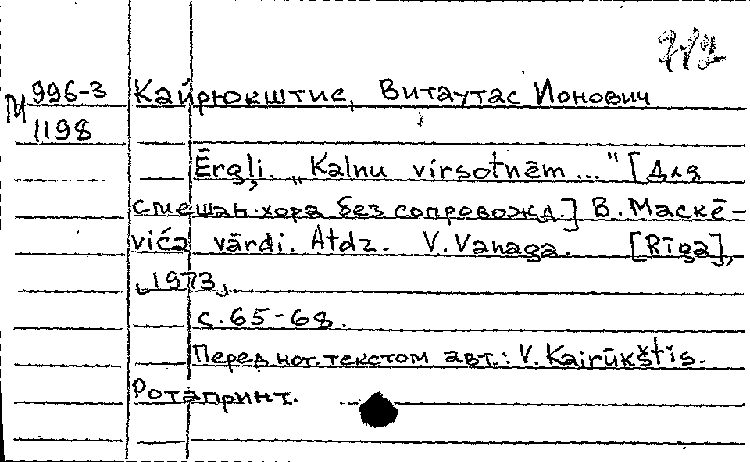 712
М 996-3 Кайрюкштис, Витаутас Ионович
1198
Ērgļi. „Kalnu virsotnēm..." [Для
смешан. хора без сопровожд.] В. Маскē-
viča vārdi. Atdz. V. Vanaga. [Rīga],
1973.
с. 65-68.
Перед нот. текстом авт.: V. Kairūkštis.
Ротапринт.